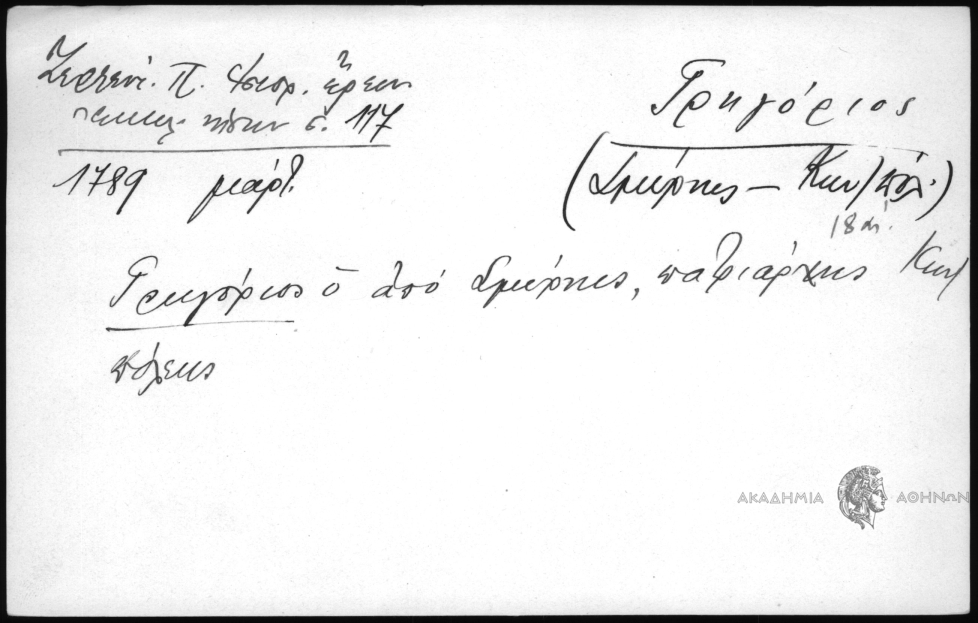 Ζερλέντ. Π. Ἱστορ. ἔρευν
ἐκκλ. νήσων σ. 117
1789 μαρτ.
Γρηγόριος
(Σμύρνης – Κων/πόλ.)
18 αἰ.
Γρηγόριος ὁ ἀπό Σμύρνης, πατριάρχης Κων/
πόλεως
ΑΚΑΔΗΜΙΑ ΑΘΗΝΩΝ